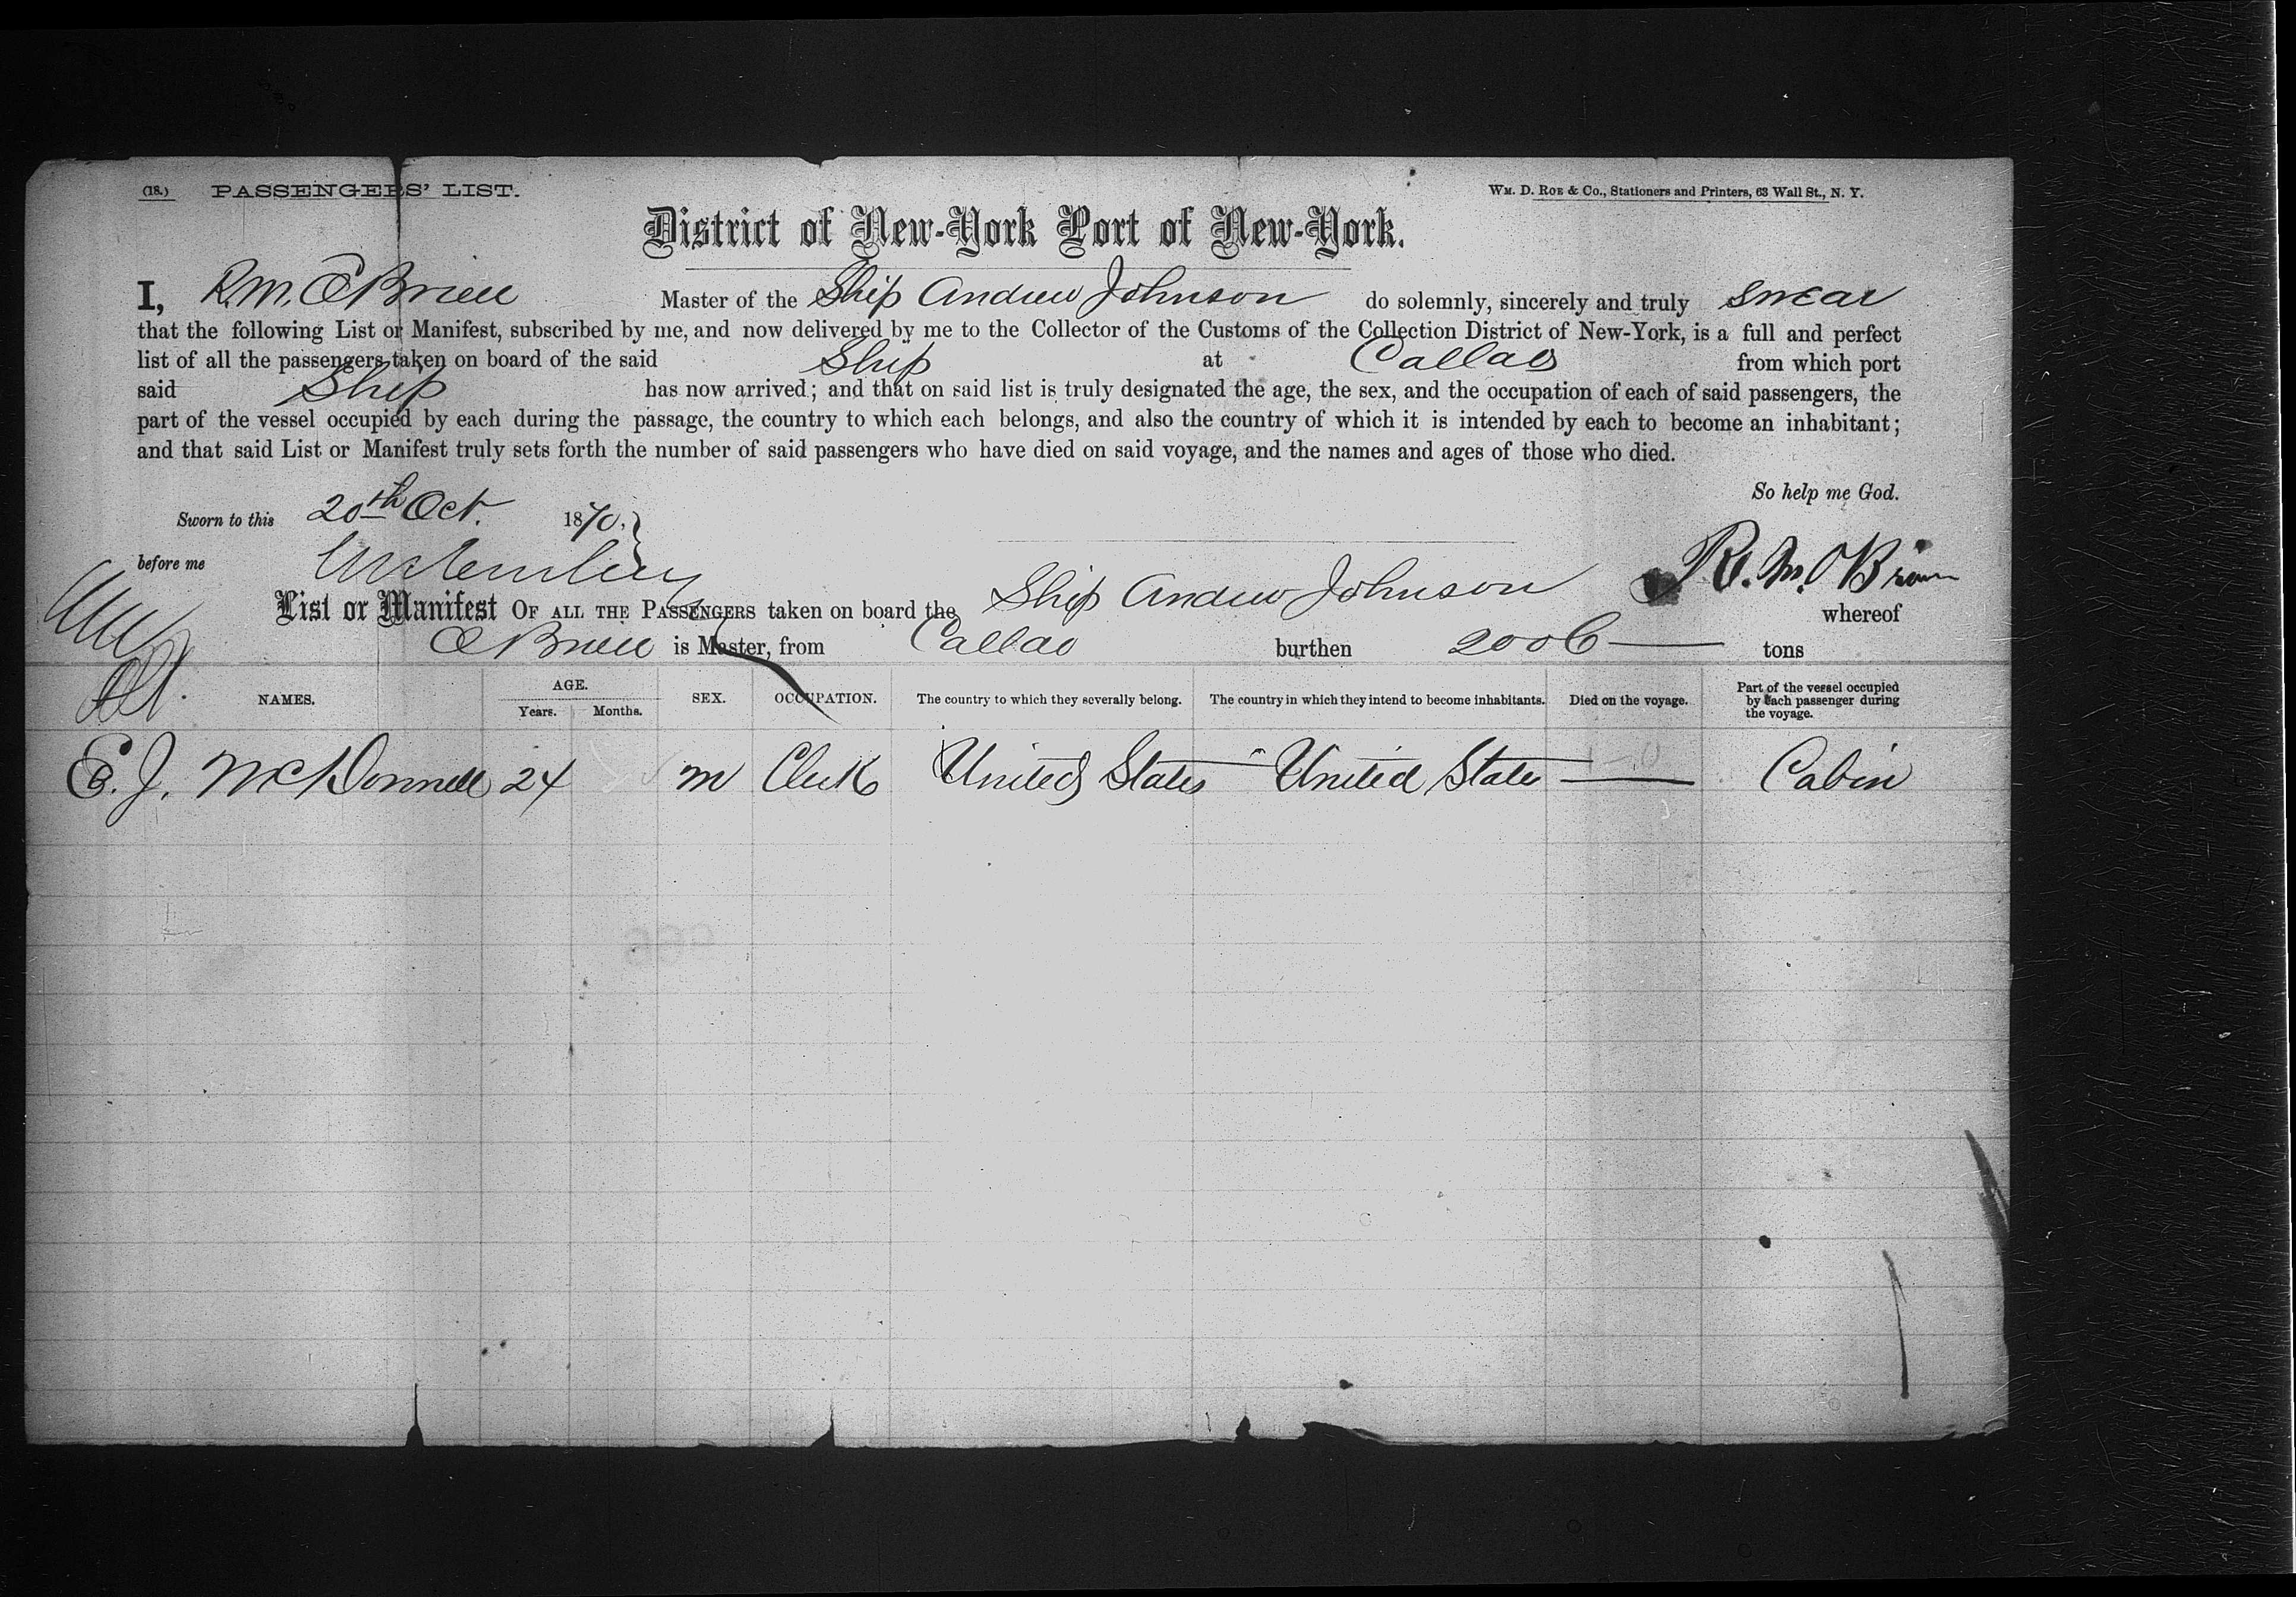 (18.) PASSENGERS' LIST.
WM. D. ROE & CO., Stationers and Printers, 63 Wall St., N. Y.
District of New-York Port of New-York.
I, R.M. OBrien Master of the Ship Andrew Johnson do solemnly, sincerely and truly swear
that the following List or Manifest, subscribed by me, and now delivered by me to the Collector of the Customs of the Collection District of New-York, is a full and perfect
list of all the passengers taken on board of the said Ship at Callao from which port
said Ship has now arrived; and that on said list is truly designated the age, the sex, and the occupation of each of said passengers, the
part of the vessel occupied by each during the passage, the country to which each belongs, and also the country of which it is intended by each to become an inhabitant;
and that said List or Manifest truly sets forth the number of said passengers who have died on said voyage, and the names and ages of those who died.
So help me God.
Sworn to this 20th Oct. 1870.
before me
R. M. OBrien
List or Manifest OF ALL THE PASSENGERS taken on board the Ship Andrew Johnson whereof
OBrien is Master, from Callao burthen 2006 tons
NAMES. AGE. Years. Months. SEX. OCCUPATION. The country to which they severally belong. The country in which they intend to become inhabitants. Died on the voyage. Part of the vessel occupied by each passenger during the voyage.
E. J. McDonnell 24 m Clerk United States United States — Cabin